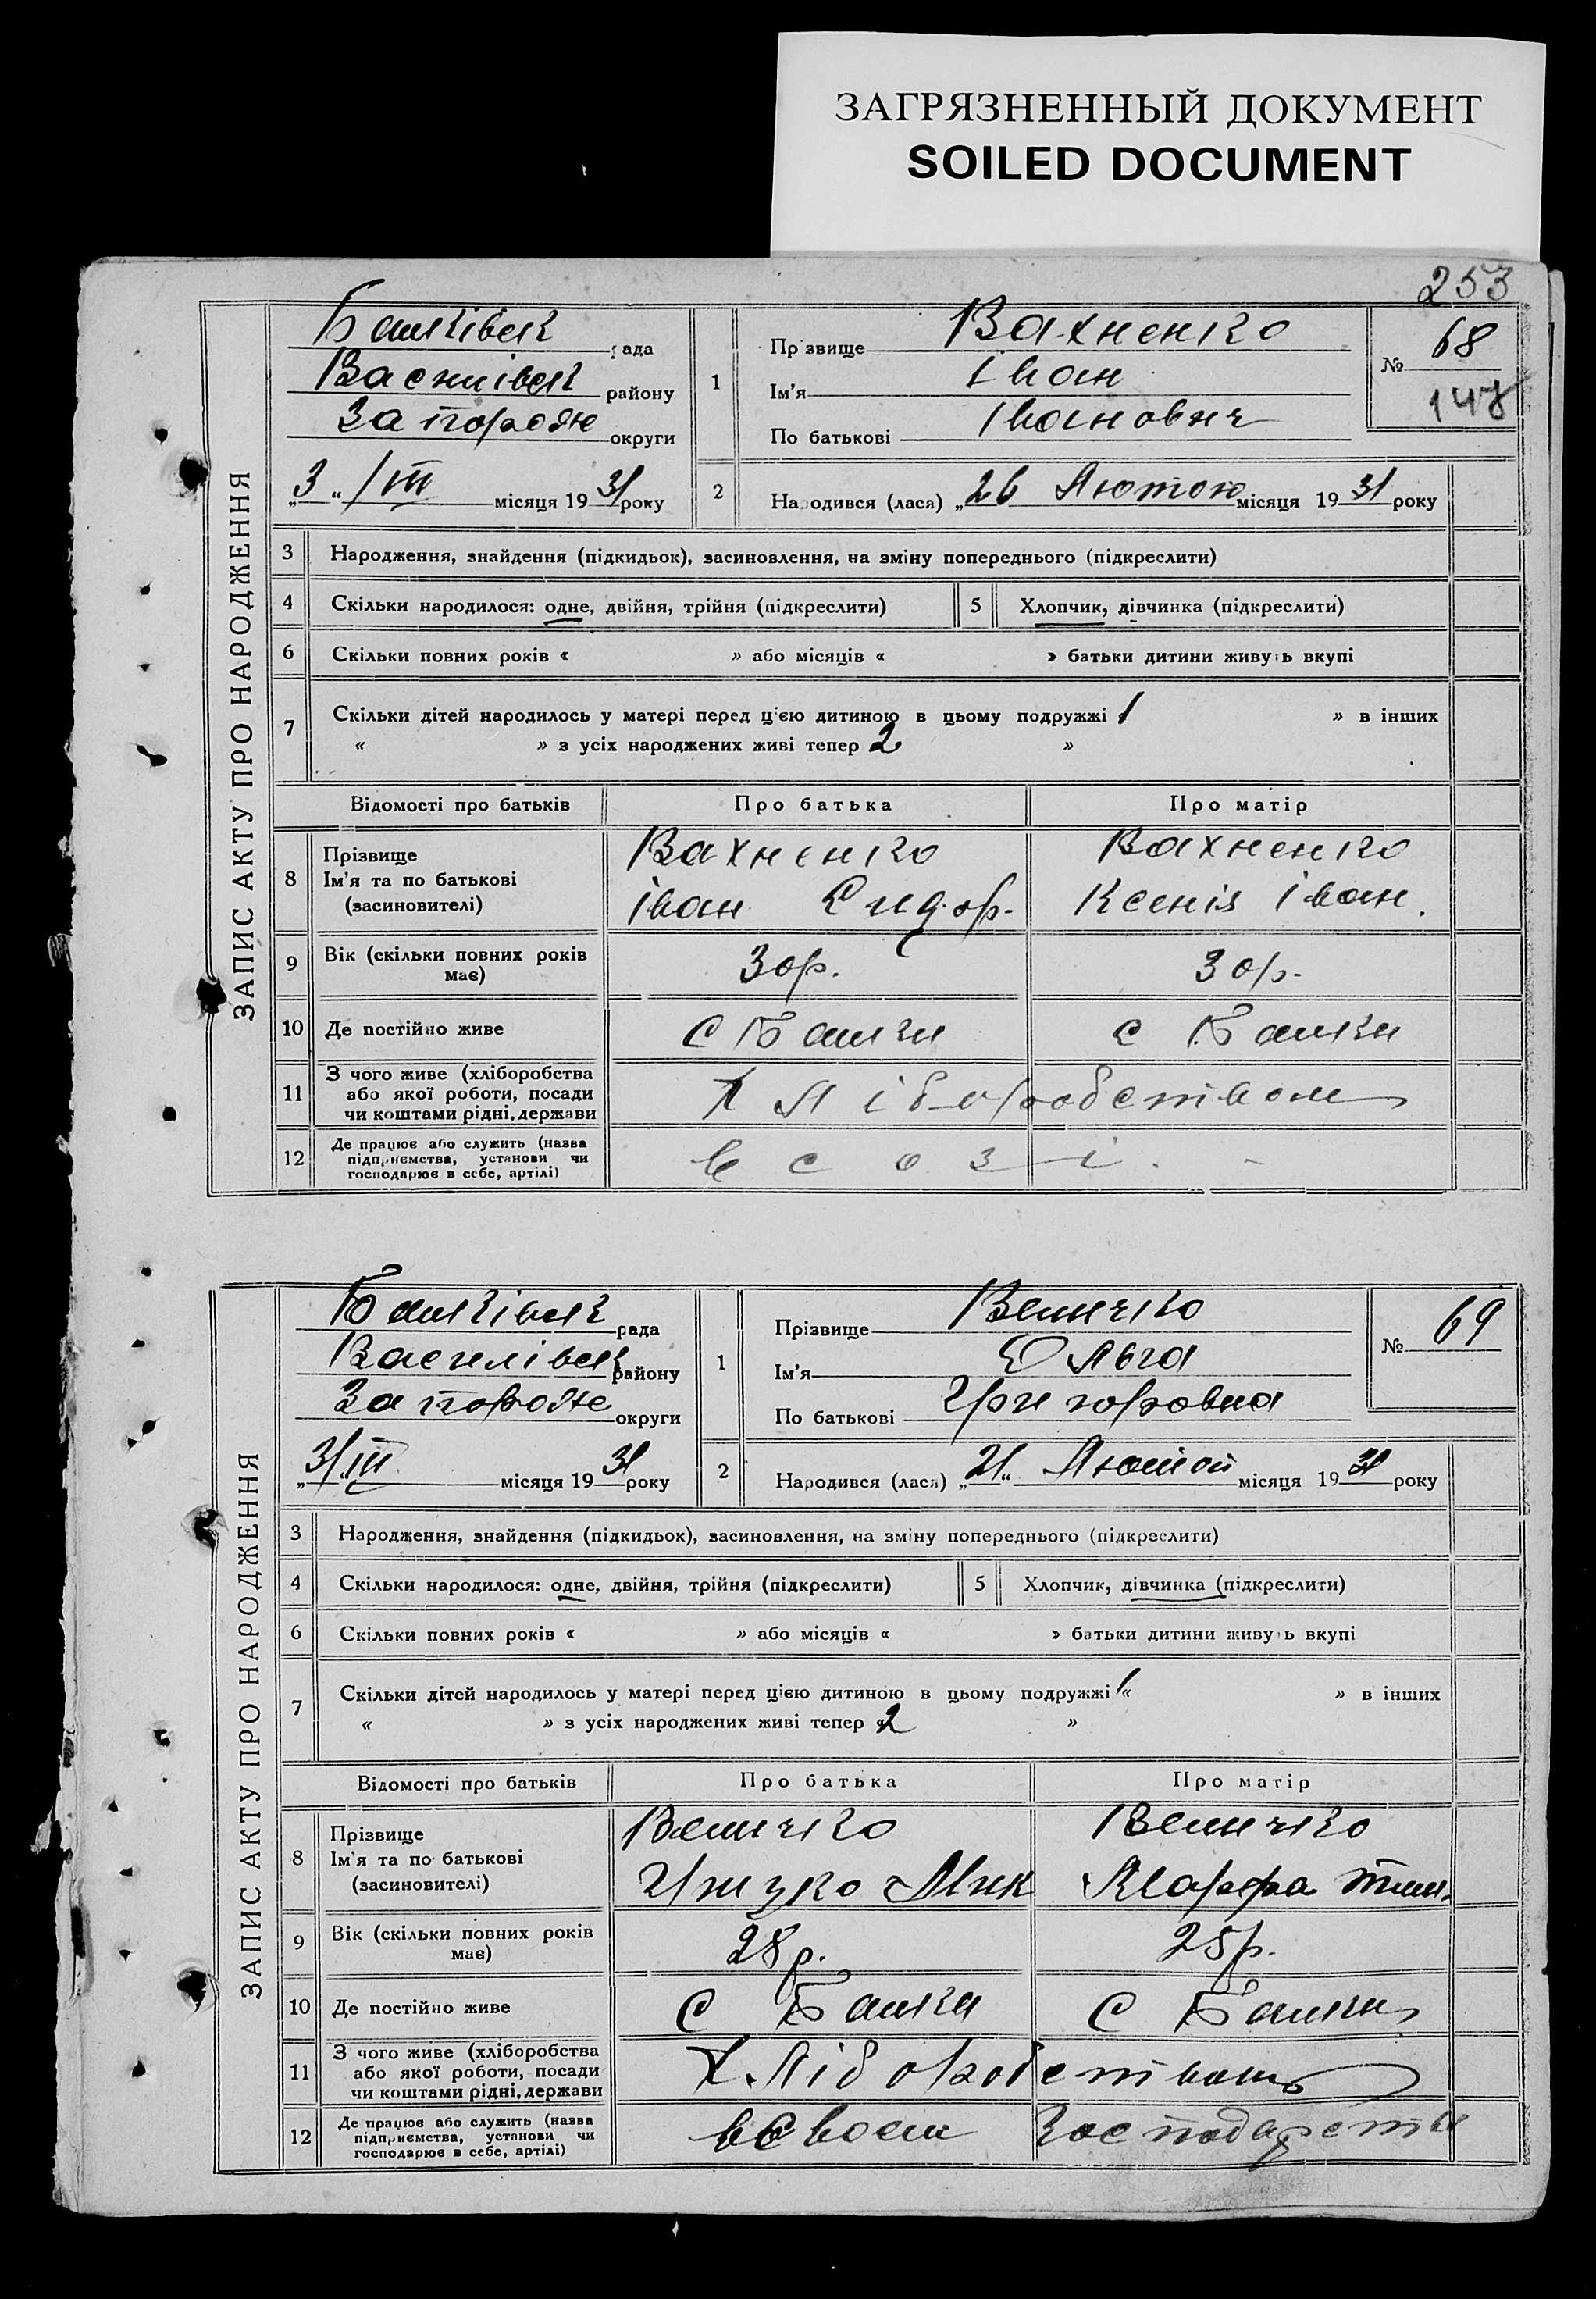 ЗАГРЯЗНЕННЫЙ ДОКУМЕНТ
SOILED DOCUMENT
253
ЗАПИС АКТУ ПРО НАРОДЖЕННЯ
Балківск рада
Василівск району
Запорож округи
„3„ /III місяця 19 31 року
1
Прізвище Вахненко
Ім'я Іван
По батькові Іванович
№ 68
147
2
Народився (лася) „26 Лютого місяця 19 31 року
3 Народження, знайдення (підкидьок), засиновлення, на зміну попереднього (підкреслити)
4 Скільки народилося: одне, двійня, трійня (підкреслити) 5 Хлопчик, дівчинка (підкреслити)
6 Скільки повних років « » або місяців « » батьки дитини живуть вкупі
7 Скільки дітей народилось у матері перед цією дитиною в цьому подружжі 1 » в інших
« » з усіх народжених живі тепер 2 »
Відомості про батьків Про батька Про матір
8 Прізвище Вахненко Вахненко
Ім'я та по батькові Іван Сидор. Ксенія Іван.
(засиновителі)
9 Вік (скільки повних років має) 30р. 30р.
10 Де постійно живе с Балки с Балки
11 З чого живе (хліборобства
або якої роботи, посади
чи коштами рідні, держави
Хліборобством
12 Де працює або служить (назва
підприємства, установи чи
господарює в себе, артілі)
в созі
ЗАПИС АКТУ ПРО НАРОДЖЕННЯ
Балківск рада
Василівск району
Запороже округи
„3/III місяця 19 31 року
1
Прізвище Величко
Ім'я Ольга
По батькові Григоровна
№ 69
2
Народився (лася) „21„ Лютой місяця 19 31 року
3 Народження, знайдення (підкидьок), засиновлення, на зміну попереднього (підкреслити)
4 Скільки народилося: одне, двійня, трійня (підкреслити) 5 Хлопчик, дівчинка (підкреслити)
6 Скільки повних років « » або місяців « » батьки дитини живуть вкупі
7 Скільки дітей народилось у матері перед цією дитиною в цьому подружжі 1« » в інших
« » з усіх народжених живі тепер «2 »
Відомості про батьків Про батька Про матір
8 Прізвище Величко Величко
Ім'я та по батькові Грицко Мик Марфа Тим.
(засиновителі)
9 Вік (скільки повних років має) 28р. 25р.
10 Де постійно живе с Балки с Балки
11 З чого живе (хліборобства
або якої роботи, посади
чи коштами рідні, держави
Хліборобством
12 Де працює або служить (назва
підприємства, установи чи
господарює в себе, артілі)
в своем господарстві